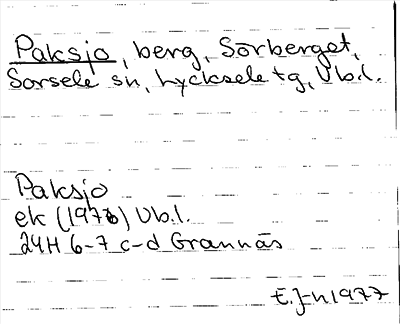 Paksjo, berg, Sörberget,
Sorsele sn, Lycksele tg, Vb.l.
Paksjo
ek (1976) Vb.l.
24H 6-7 c-d Grannäs
E.J-n 1977